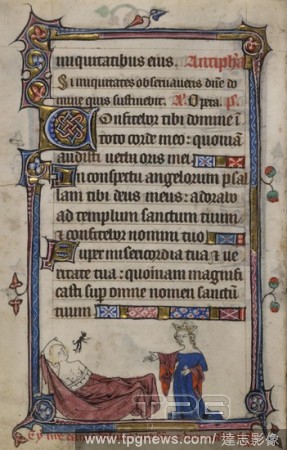 iniquitatibus eius. Antiph̄a
Si iniquitates obseruaueris dn̄e do
mine quis sustinebit. A. Opera. p̄s.
Confitebor tibi domine ī
toto corde meo: quoniā
audisti uerba oris mei.
In conspectu angelorum psal
lam tibi deus meus: adorabo
ad templum sanctum tuum
et confitebor nomini tuo
Super misericordia tua et ue
ritate tua: quoniam magnifi
casti sup̄ omne nomen sanctū
tuum
TPG
www.tpgnews.com/達志影像